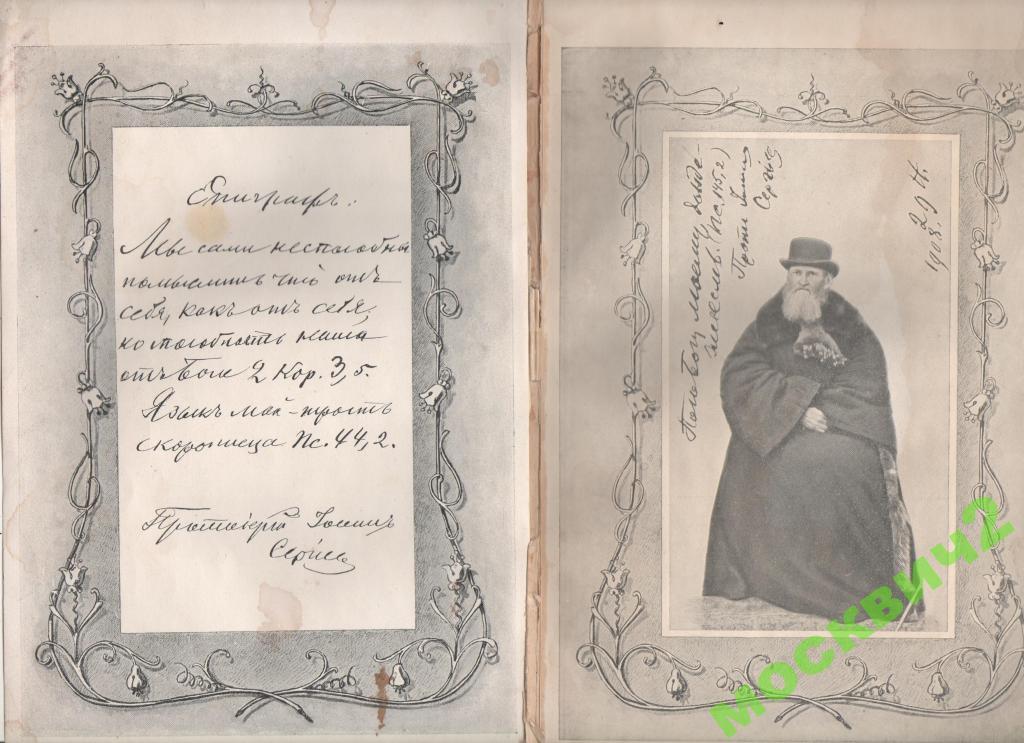 Епиграфъ.
Мы сами неспособны
помыслить что отъ
себя, какъ отъ себя,
но способность наша
отъ Бога 2 Кор. 3, 5.
Языкъ мой - трость
скорописца Пс. 44, 2.
Протоіерей Іоаннъ
Сергіевъ
Пою Богу моему дон-
деже есмь (Пс. 145, 2)
Прот. Іоаннъ
Сергіевъ
1903.
МОСКВИЧ2